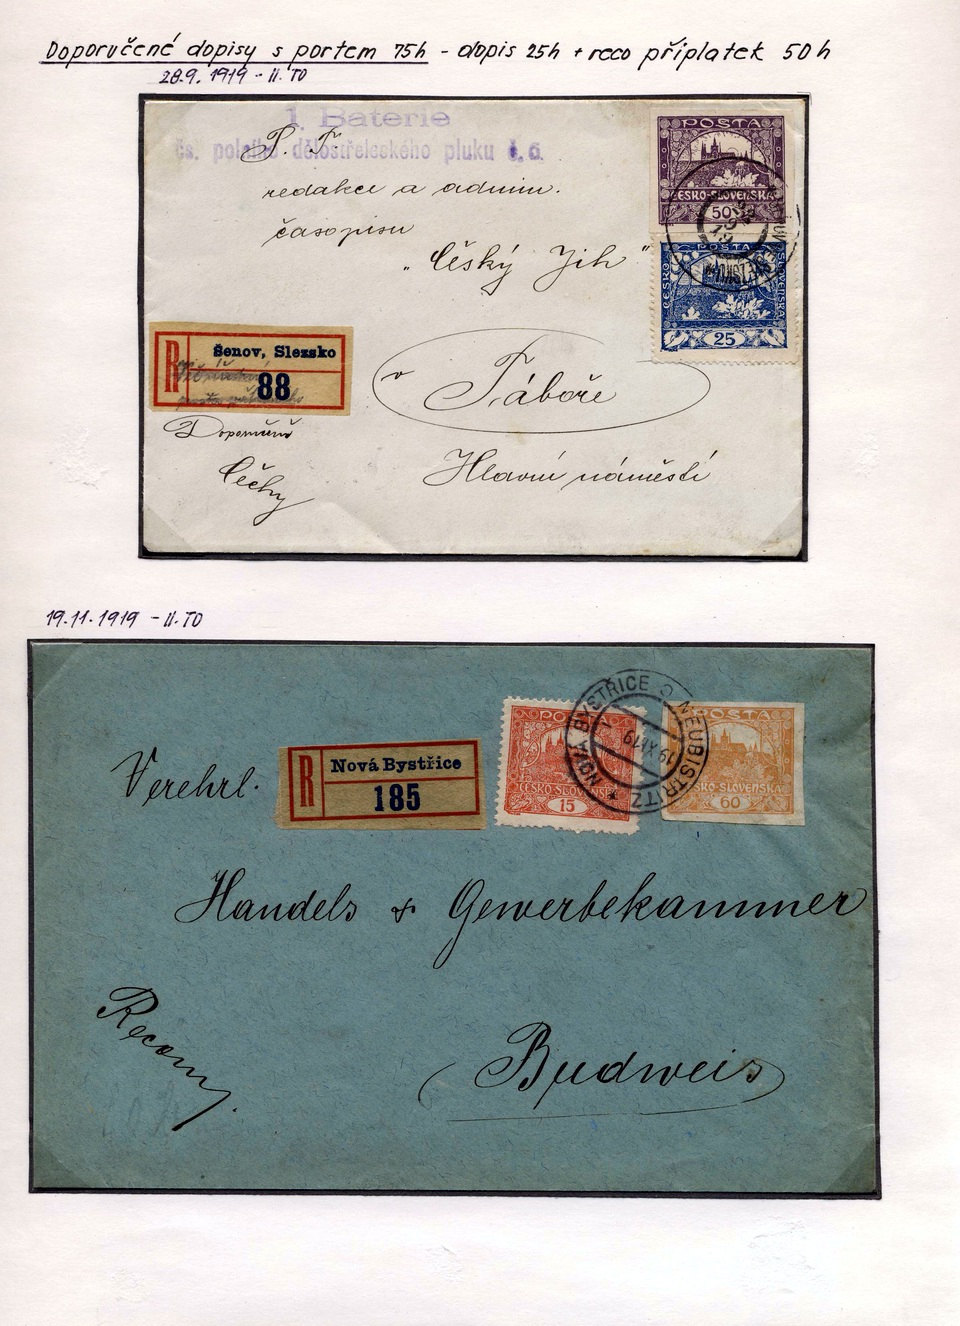 Doporučené dopisy s portem 75h - dopis 25h + reco příplatek 50h
28.9.1919 - II.TO
1. Baterie
čs. polního dělostřeleckého pluku
P. T.
redakce a admin.
časopisu
„Český Jih"
v Táboře
Hlavní náměstí
R Šenov, Slezsko
88
Doporučeně
Čechy
POSTA
ČESKO-SLOVENSKA
50
POSTA
ČESKO SLOVENSKA
25
19.11.1919 - II.TO
R Nová Bystřice
185
POSTA
ČESKO-SLOVENSKA
15
NOVÁ BYSTŘICE NEUBISTRITZ
19.XI.19
POSTA
ČESKO-SLOVENSKA
60
Verehrl.
Handels & Gewerbekammer
Recom.
Budweis